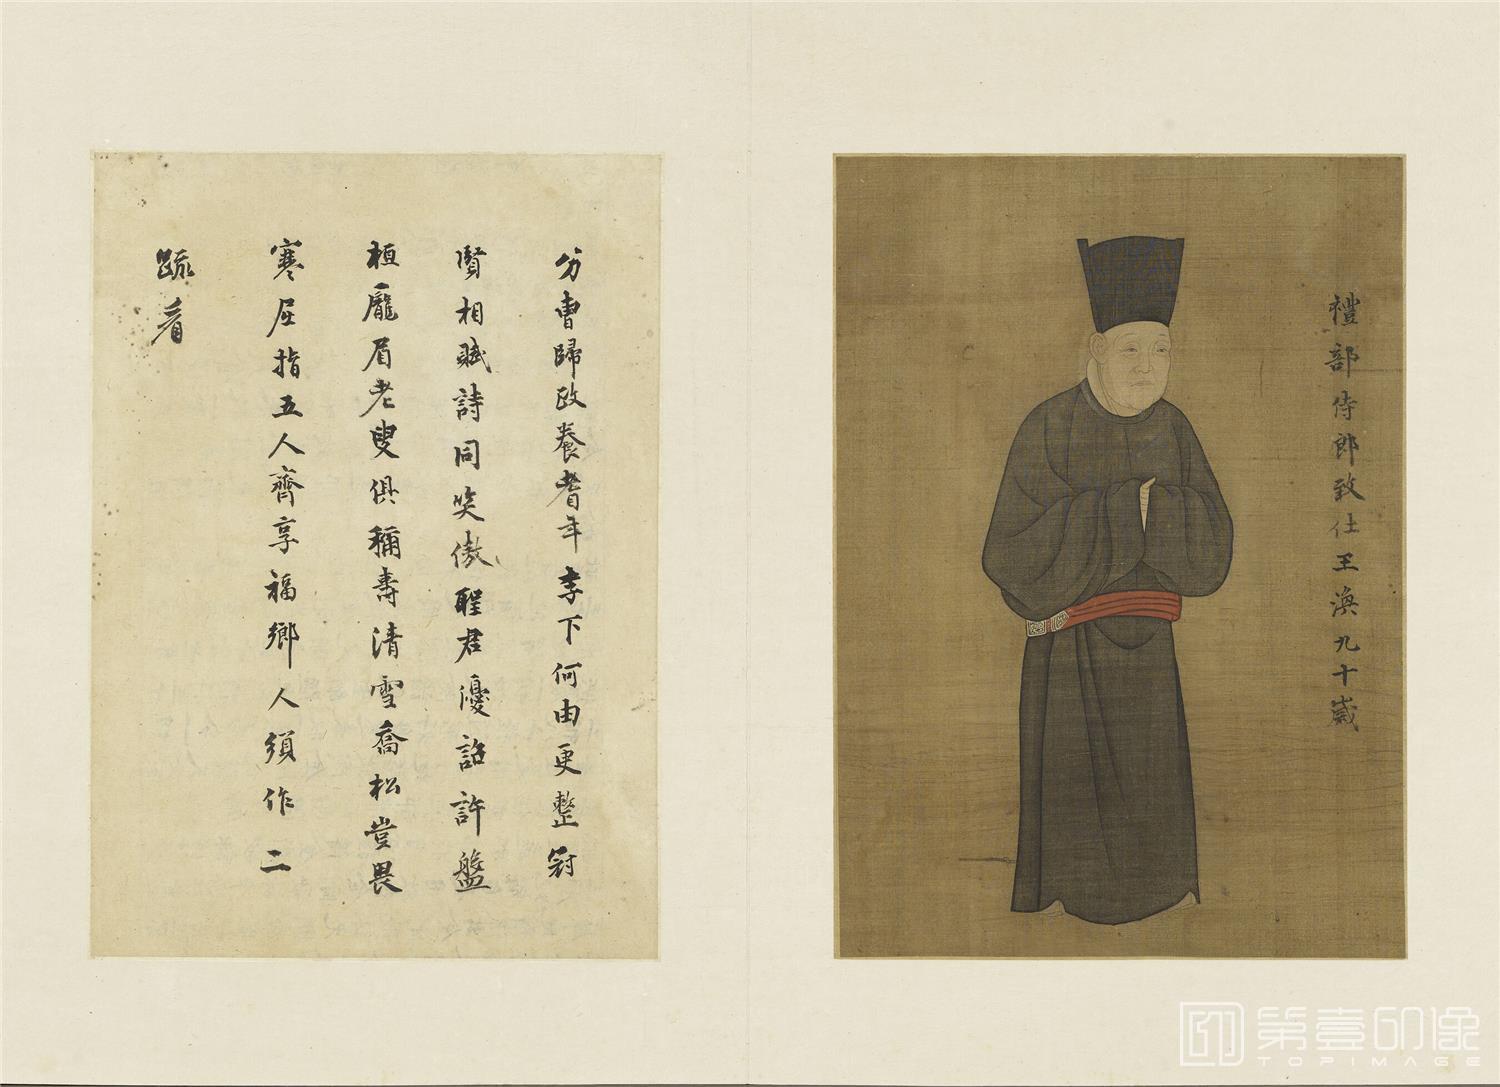 禮部侍郎致仕王渙九十歲
分曹歸政養耆年李下何由更整冠
賢相賦詩同笑傲聖君優詔許盤
桓龐眉老叟俱稱壽清雪喬松豈畏
寒屈指五人齊享福鄉人須作二
疏看
第壹印像
TOPIMAGE